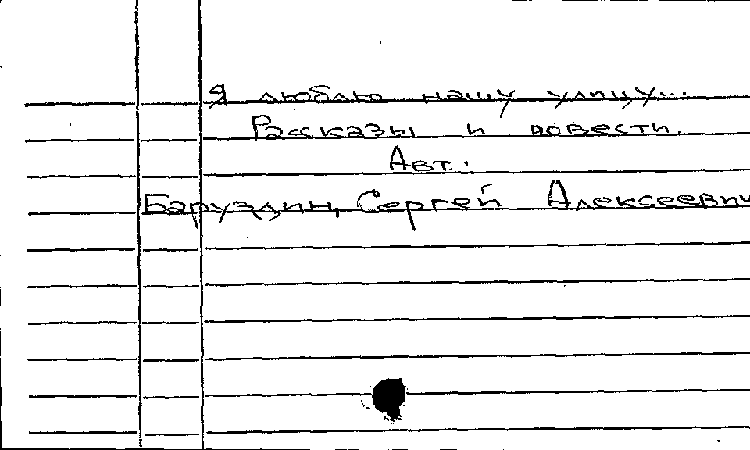 Я люблю нашу улицу...
Рассказы и повести.
Авт.:
Баруздин, Сергей Алексеевич